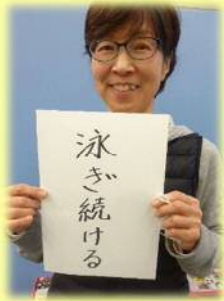 泳ぎ続ける